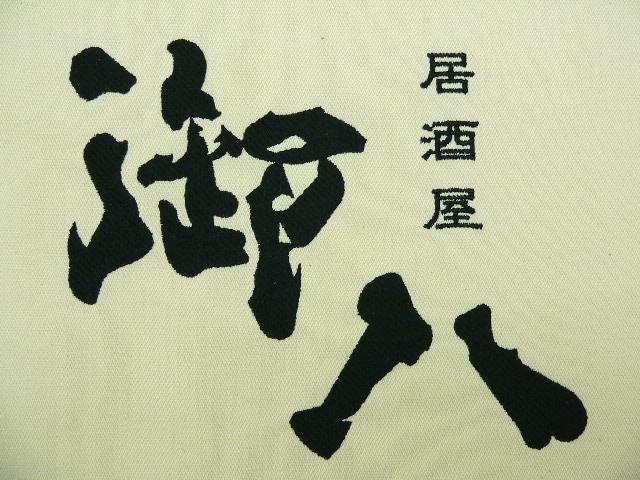 居酒屋
御八